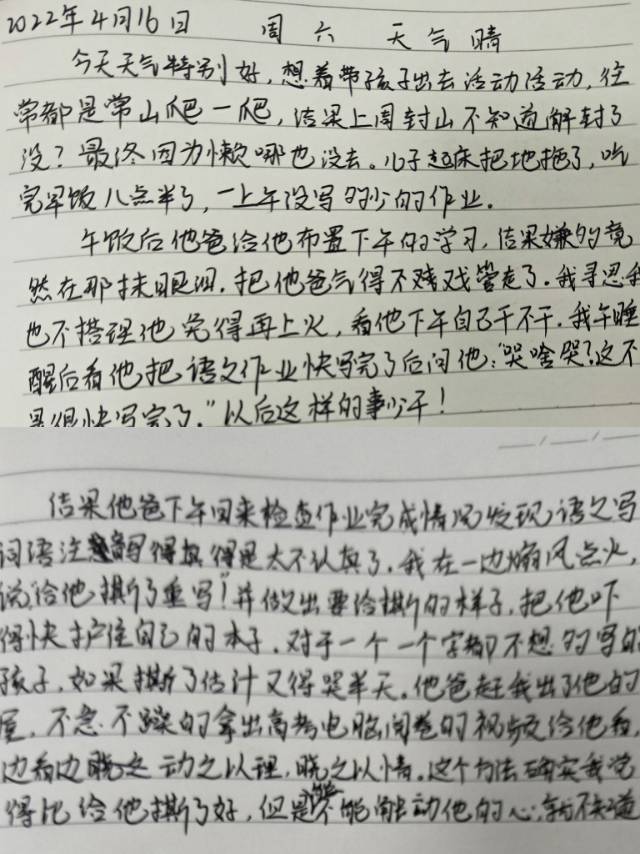 2022年4月16日 周六 天气晴
今天天气特别好,想着带孩子出去活动活动,往
常都是常山爬一爬,结果上周封山不知道解封了
没?最终因为懒哪也没去。儿子起床把地拖了,吃
完早饭八点半了,一上午没写多少的作业。
午饭后他爸给他布置下午的学习,结果嫌多竟
然在那抹眼泪,把他爸气得不
管走了。我寻思我
也不搭理他免得再上火,看他下午自己干不干。我午睡
醒后看他把语文作业快写完了后问他:"哭啥哭?这不
是很快写完了。"以后这样的事少干!
结果他爸下午回来检查作业完成情况发现语文写
词语注音写得真得是太不认真了。我在一边煽风点火,
说给他撕了重写!并做出要给撕的样子,把他吓
得快护住自己的本子。对于一个一个字都不想多写的
孩子,如果撕了估计又得哭半天。他爸赶我出了他的
屋,不急不躁的拿出高考电脑阅卷的视频给他看,
边看边晓之动之以理,晓之以情。这个方法确实我觉
得比给他撕了好,但是能不能触动他的心,就不知道